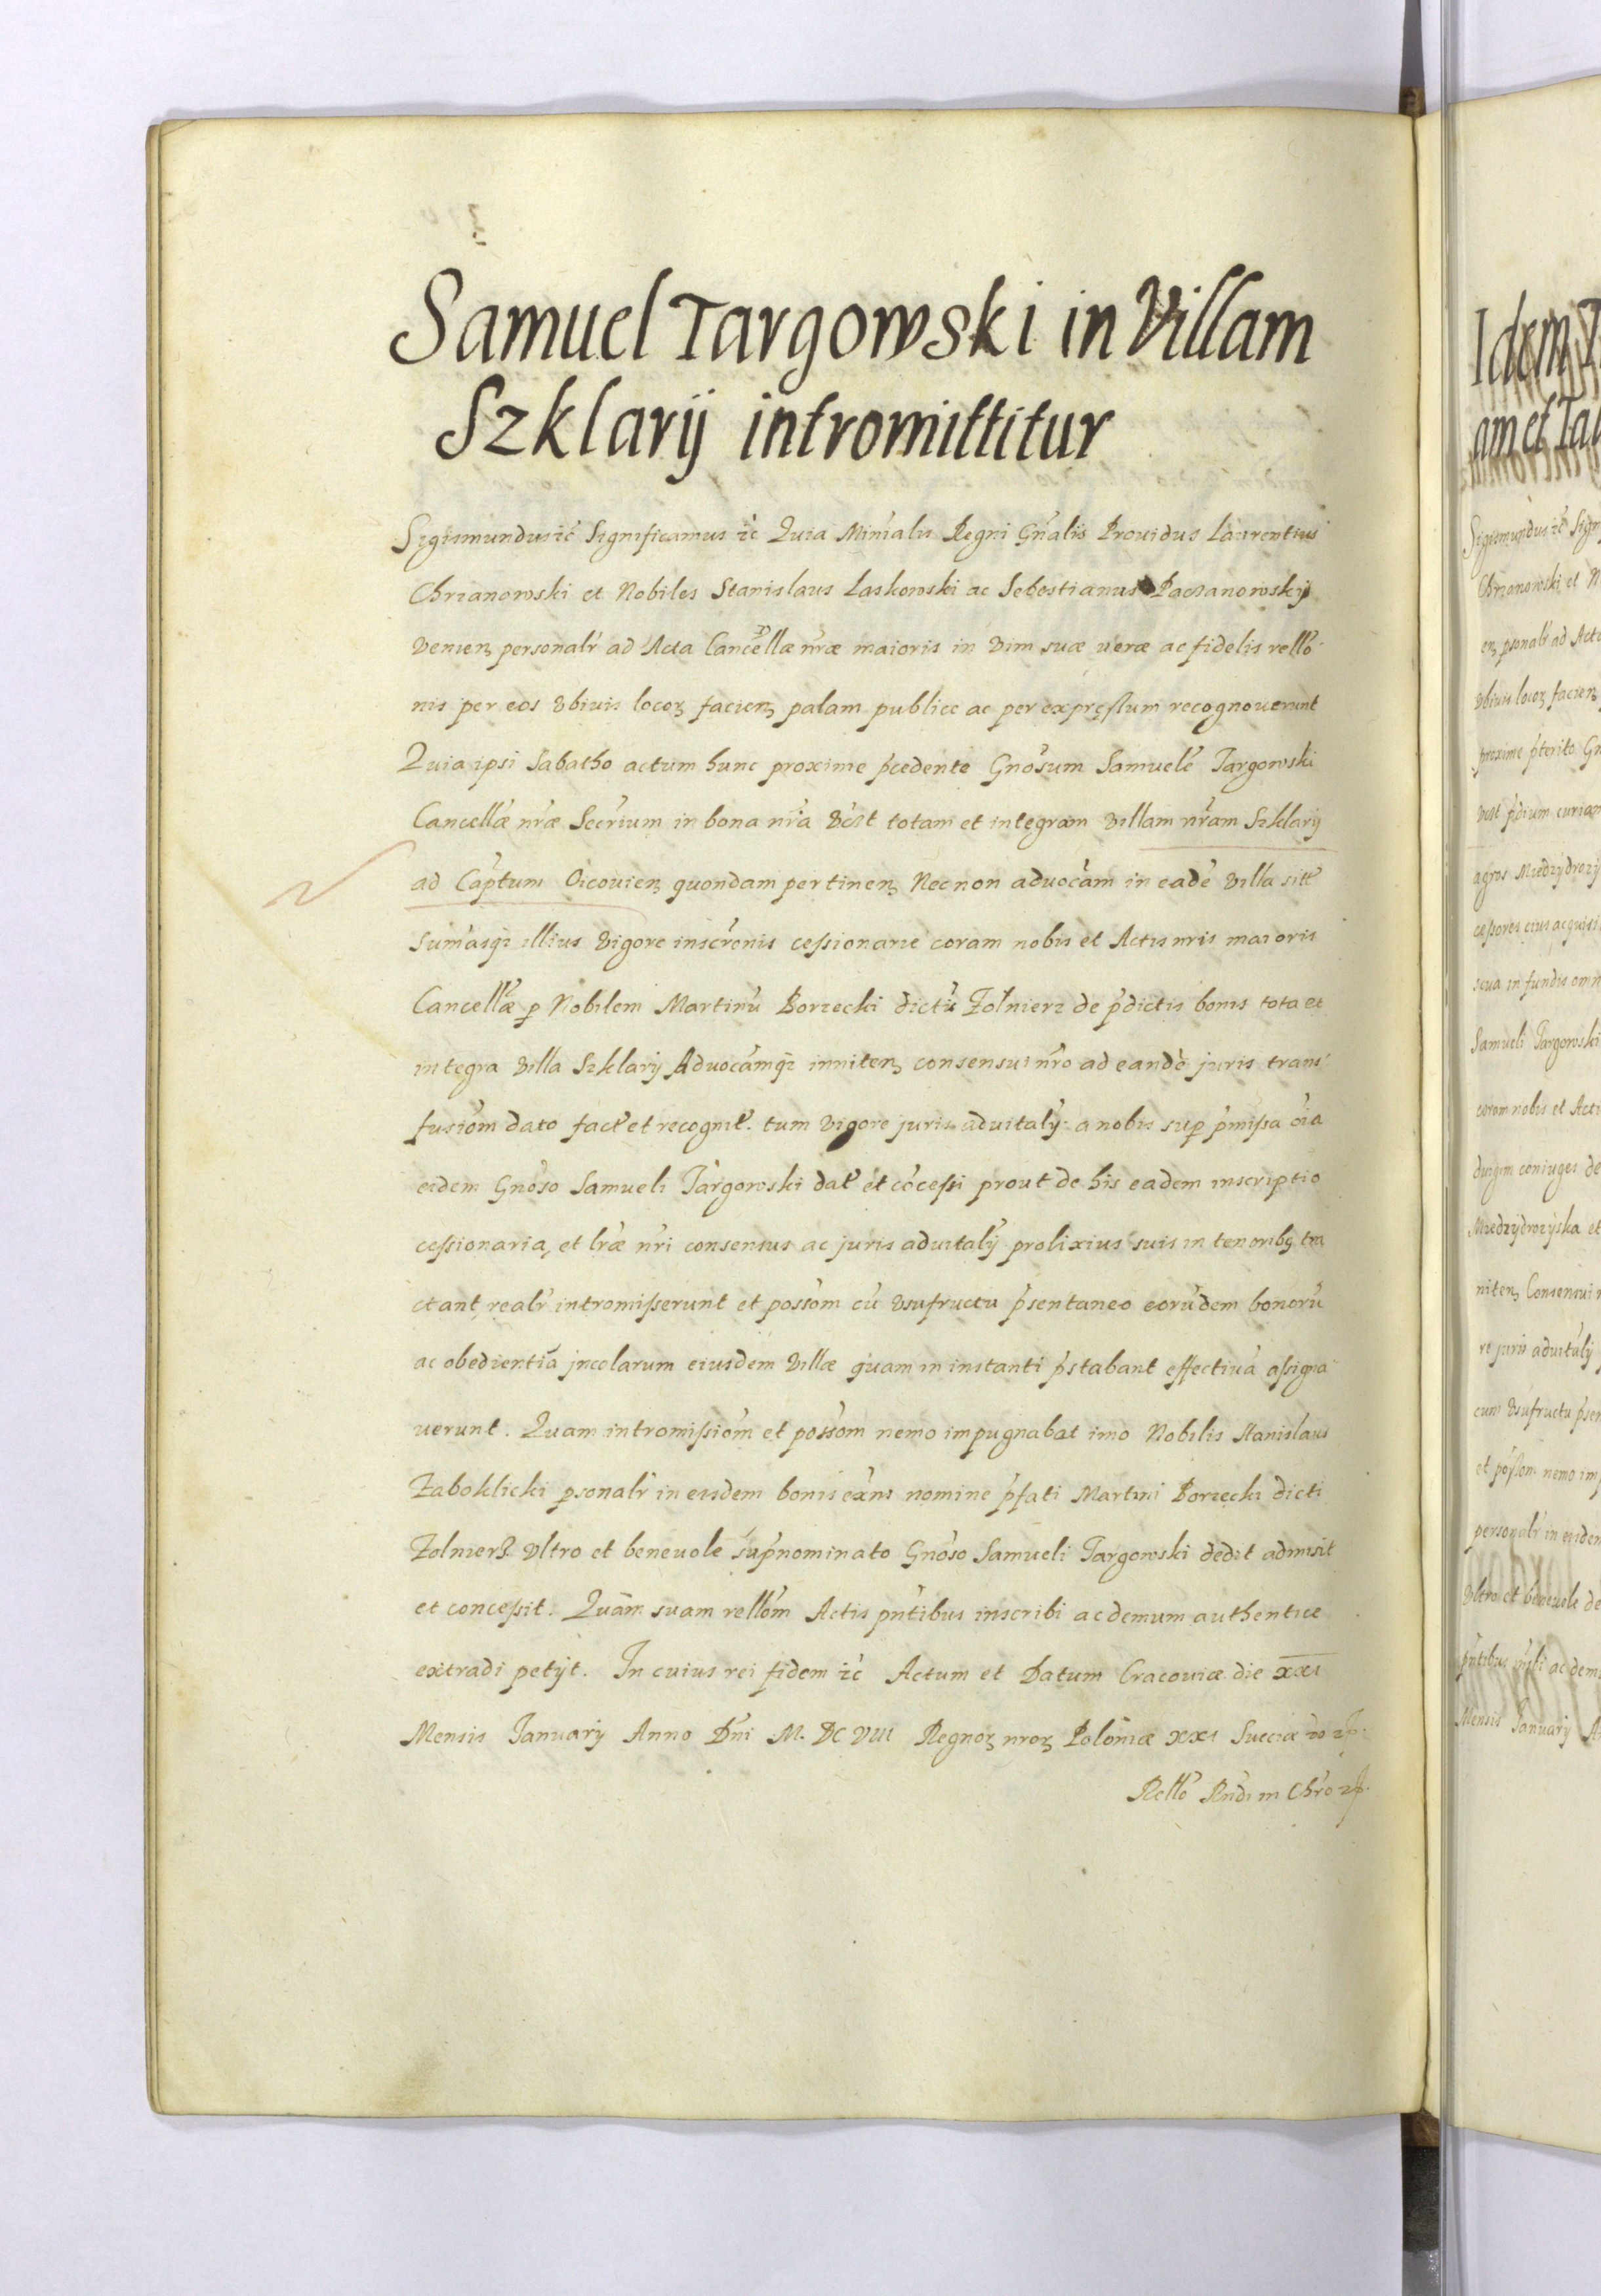 Samuel Targowski in Villam
Szklarÿ intromittitur
Sigismundus ʒć Significamus ʒć Quia Minr̃alis Regni Gñalis Prouidus Laurentius
Chrzanowski et Nobiles Stanislaus Laskowski ac Sebestianus Paczanowsky
Venienʒ personalr̃ ad Acta Cancellæ nr̃æ maioris in Vim suæ ueræ ac fidelis rellõ
nis per eos Vbiuis locoʒ facienʒ palam publice ac per expręssum recognouerunt
Quia ipsi Sabatho actum hunc proxime p̃cedente Gnõsum Samuelẽ Targowski
Cancellæ nr̃æ Secr̃ium in bona nr̃a Vc̃ʒt totam et integram Villam nr̃am Szklarÿ
ad Cap̃tum Oicouienʒ quondam pertinenʒ Necnon aduocãm in eadẽ Villa sitt̃
Sum̃asqʒ illius Vigore inscr̃onis cessionarie coram nobis et Actis nr̃is maioris
Cancellæ p Nobilem Martinũ Borzecki dictũ Zolnierz de p̃dictis bonis tota et
integra Villa Szklarÿ Aduocãmqʒ innitenʒ consensui nr̃o ad eandẽ juris trans
fusiõm dato fact̃ et recognit̃. tum Vigore juris aduitalÿ a nobis sup p̃missa õia
eidem Gnõso Samueli Targowski dat̃ et cõcessi prout de his eadem inscriptio
cessionaria, et lr̃æ nr̃i consensus ac juris aduitalÿ prolixius suis in tenoribʒ tra
ctant, realr̃ intromisserunt et possõm cũ Vsufructu p̃sentaneo eorũdem bonorũ
ac obedientiã jncolarum eiusdem Villæ quam in instanti p̃stabant effectiuã assigna
uerunt. Quam intromissiõm et possõm nemo impugnabat imo Nobilis Stanislaus
Zaboklicki psonalr̃ in eisdem bonis ex̃ns nomine p̃fati Martini Borzecki dicti
Zolnierz Vltro et beneuole sup̃nominato Gnõso Samueli Targowski dedit admisit
et concessit. Quam suam rellõm Actis pñtibus inscribi ac demum authentice
extradi petÿt. In cuius rei fidem ʒć Actum et Datum Cracouiæ die xxi
Mensis Januarÿ Anno Dñi M. DC VIII Regnoʒ nr̃oʒ Poloniæ xxi Sueciæ
Rellõ Rñdi in Chr̃o